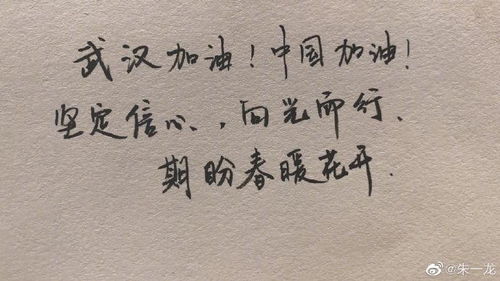 武汉加油！中国加油！
坚定信心，向光而行、
期盼春暖花开.
@朱一龙